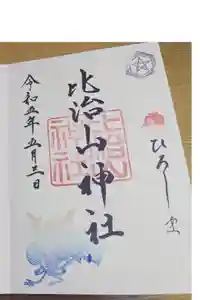 ひろしま
比治山神社
令和五年五月三日